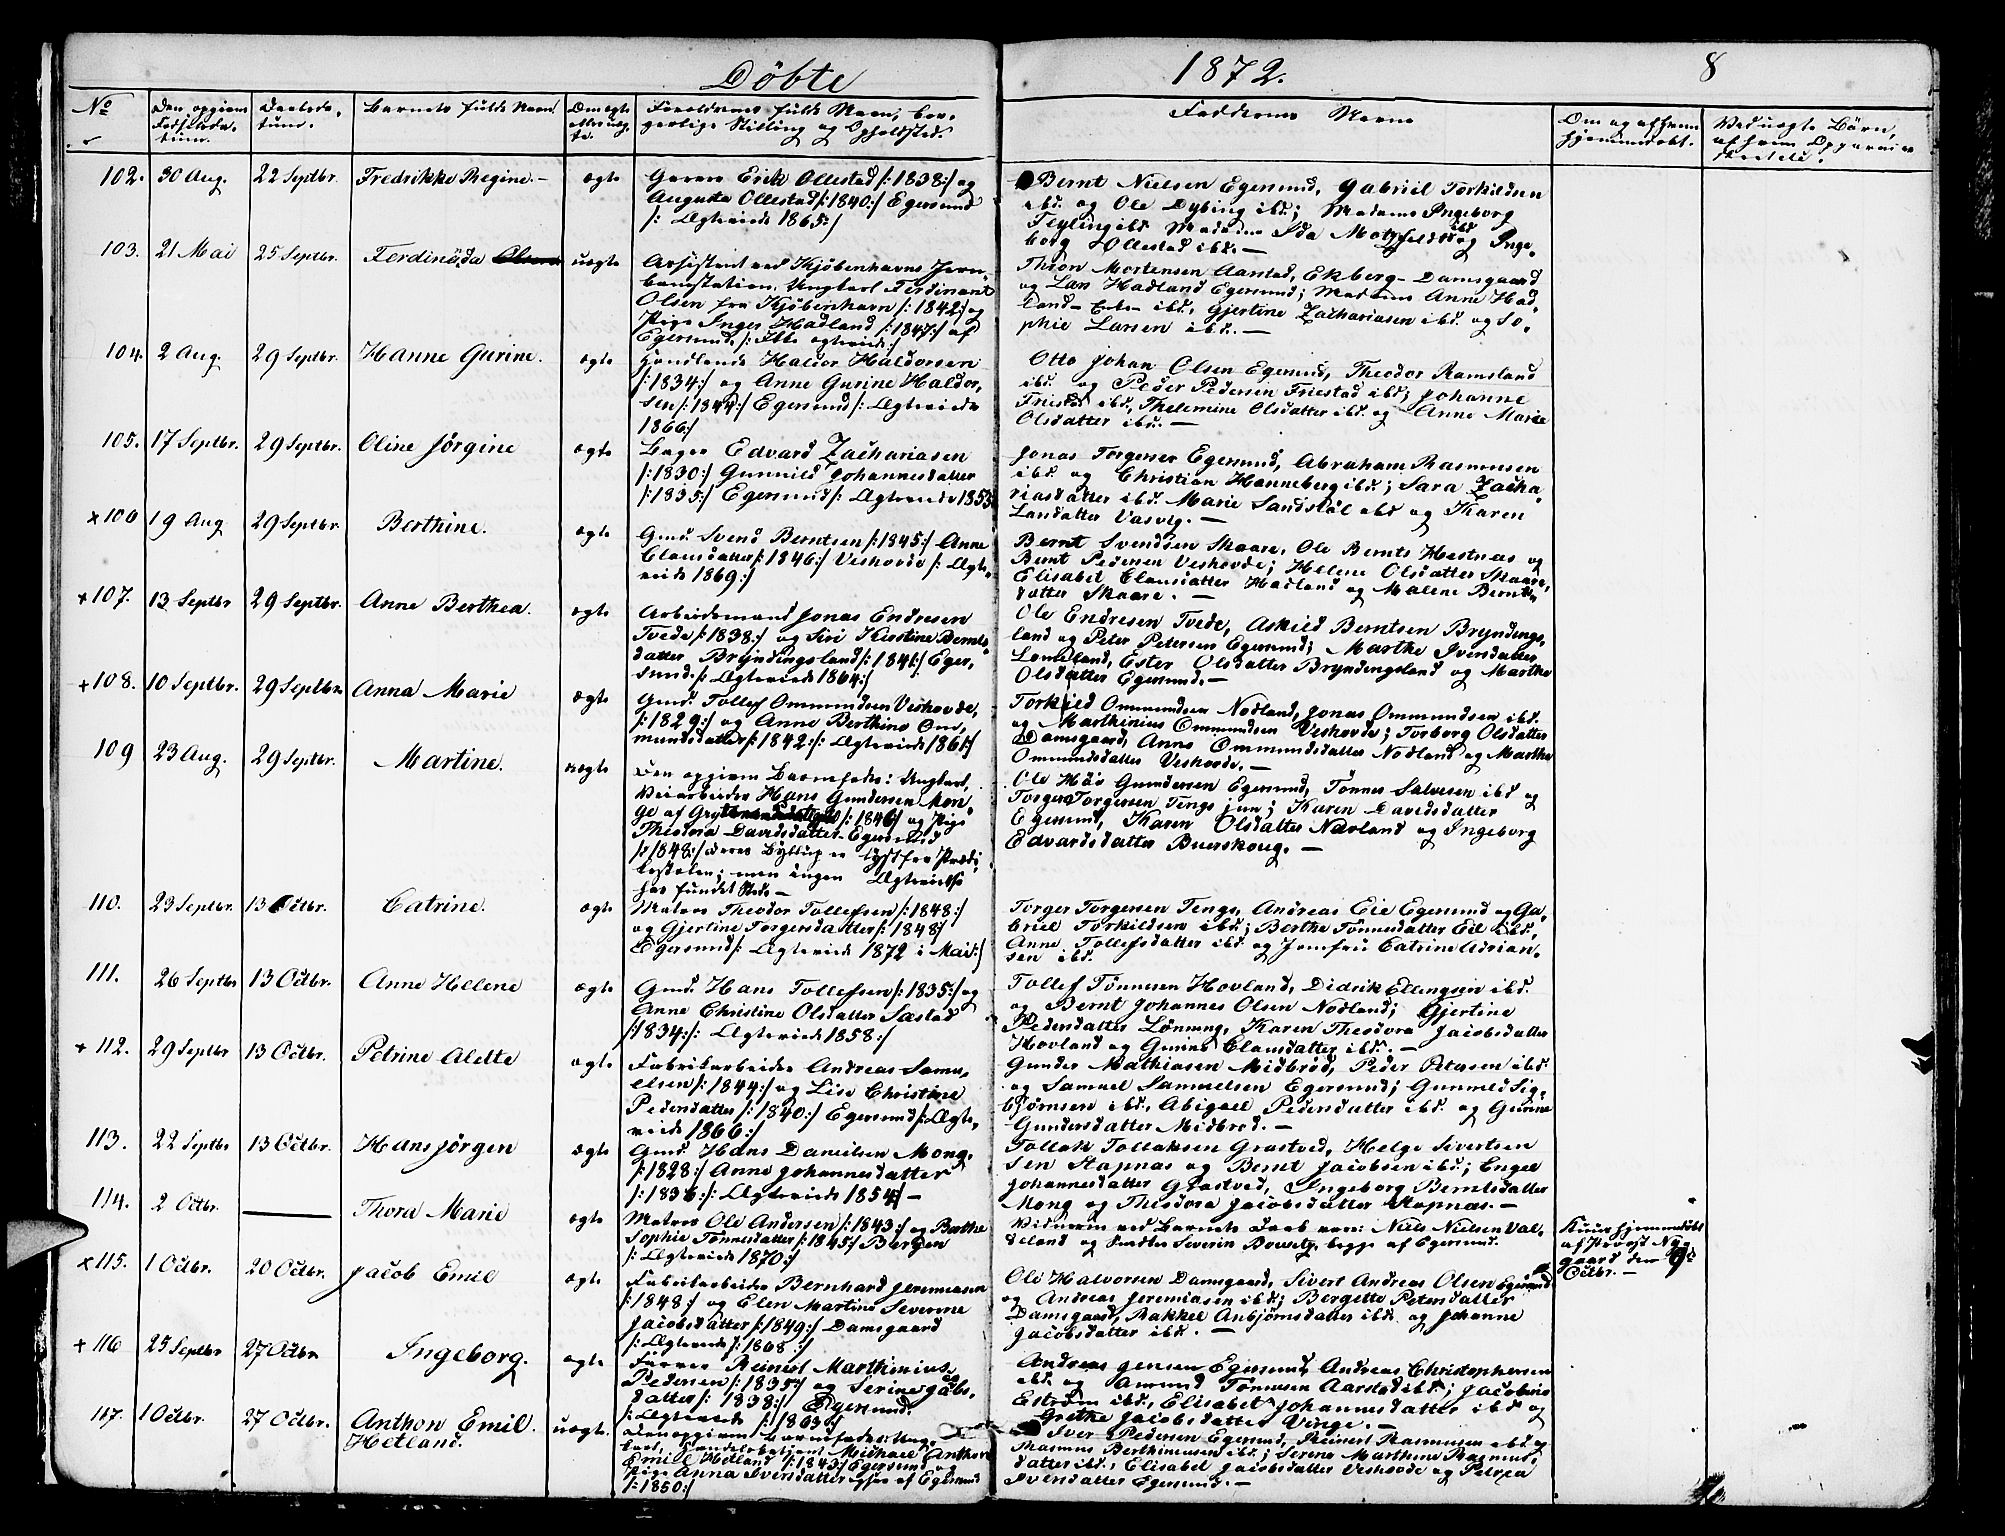 Döbte 1872. 8
No
Den opgivne Fødselsda-tum. Daabsda-tum. Barnets fulde Navn Om ægte eller uæg-te. Forældrenes fulde Navn, bor-gerlige Stilling og Opholdssted. Faddernes Navne Om og af hvem hjemmedøbt. Ved uægte Børn, af hvem Opgaven er meddelt.
102. 30 Aug. 22 Septbr. Fredrikke Regine. ægte
Garver Erik Ollestad /:1838:/ og
Augusta Ollestad /:1840:/ Egersund
/: Ægteviede 1865:/
Bernt Nielsen Egersund, Gabriel Torkildsen
ibd. og Ole Dybing ibd; Madame Ingeborg
Feyling ibd Madame Ida Motzfeldt ibd og Inge-
borg Ollestad ibd. —
103. 21 Mai 25 Septbr. Ferdinanda uægte
Assistent ved Kjøbenhavns Jern-
banestation, Ungkarl Ferdinant
Olsen fra Kjøbenhavn /:1842:/ og
Pige Inger Hadland /:1847:/ af
Egersund /: Ikke ægteviede:/
Theon Mortensen Aarstad, Ekberg Damsgaard
og Lars Hadland Egersund; Madame Anne Had-
land ibd, Gjertine Zachariasen ibd. og So-
phie Larsen ibd. —
104. 2 Aug. 29 Septbr. Hanne Gurine. ægte
Handlende Haldor Haldorsen
/:1834:/ og Anne Gurine Haldor-
sen /:1844:/ Egersund /: Ægteviede
1866:/
Otto Johan Olsen Egersund, Theodor Ramsland
ibd. og Peder Pedersen Friestad ibd; Johanne
Friestad ibd., Thelemine Olsdatter ibd. og Anne Marie
Olsdatter ibd. —
105. 17 Septbr. 29 Septbr. Oline Jörgine ægte
Bager Edvard Zachariasen
/:1830:/ Gunnild Johannesdatter
/:1835:/ Egersund /: Ægteviede 1853
Jonas Torgersen Egersund, Abraham Rasmusen
ibd. og Christian Hanneberg ibd; Sara Zacha-
riasdatter ibd. Marie Sandstöl ibd og Karen
Larsdatter Vasvig. —
x 106 19 Aug 29 Septbr. Berthine. ægte
Gmd. Svend Berntsen /:1845:/ Anne
Clausdatter /:1846:/ Veshovde /: Ægte-
viede 1869:/
Bernt Svendsen Skaare, Ole Bernts Hestnes og
Bernt Pedersen Veshovde; Helene Olsdatter Skaare,
Elisabet Clausdatter Hadland og Malene Bernts-
datter Skaare. —
+ 107. 13 Septbr 29 Septbr. Anne Berthea. ægte
Arbeidsmand Jonas Endresen
Tvede /:1838:/ og Siri Kirstine Bernts-
datter Bryndingsland /:1841:/ Eger-
sund. /: Ægteviede 1864:/
Ole Endresen Tvede, Askild Berntsen Bryndings-
land og Peter Petersen Egersund; Marthe Iversdatter
Lomeland, Ester Olsdatter Bryndingsland og Marthe
Olsdatter Egersund. —
+ 108. 10 Septbr. 29 Septbr Anna Marie ægte
Gmd. Tollef Ommundsen Veshovde,
/:1829:/ og Anne Berthine Om-
mundsdatter /:1842:/: Ægteviede 1861:/
Torkild Ommundsen Nodland, Jonas Ommundsen ibd.
og Marthinius Ommundsen Veshovde; Torborg Olsdatter
Damsgaard, Anne Ommundsdatter Nodland og Marthe
Ommundsdatter Veshovde. —
109 23 Aug. 29 Septbr. Martine. uægte
Den opgivne Barnefader: Ungkarl,
Veiarbeider Hans Gundersen Mon
ge af /:1846/ og Pige
Theodora Davidsdatter Egersund
/:1848:/ Deres Byllup er lyst fra Prædi-
kestolen; men ingen Ægtevielse
har fundet Sted —
Ole Höv Gundersen Egersund, Tönnes Salvesen ibd og
Torger Torgersen Tengs jun; Karen Davidsdatter
Egersund, Karen Olsdatter Nævland og Ingeborg
Edvardsdatter Buerskoug. —
110. 23 Septbr. 13 Octbr. Catrine. ægte
Matros Theodor Tollefsen /:1848:/
og Gjertine Torgersdatter /:1848/
Egersund /: Ægteviede 1872 i Mai:/
Torger Torgersen Tengs, Andreas Eie Egersund og Ga-
briel Torkildsen ibd.; Berthe Tönnesdatter Eie ibd.
Anne Tollefsdatter ibd. og Jomfru Catrine Adrian-
sen ibd.
111. 26 Septbr 13 Octbr. Anne Helene ægte
Gmd. Hans Tollefsen /:1835:/ og
Anne Christine Olsdatter Sæstad
/:1834:/: Ægteviede 1858:/
Tollef Tönnesen Hovland, Didrik Ellingsen ibd.
og Bernt Johannes Olsen Nodland; Gjertine
Pedersdatter Lönning, Karen Theodora Jacobsdatter
Hovland og Gurine Clausdatter ibd. —
+ 112. 29 Septbr 13 Octbr. Petrine Alette ægte
Fabrikarbeider Andreas Samu-
elsen /:1844:/ og Lise Christine
Pedersdatter /:1840:/ Egersund /: Ægte-
viede 1866:/
Gunder Mathiasen Midbröd, Peder Petersen ibd.
og Samuel Samuelsen Egersund; Gunmeld Sig-
björnsen ibd., Abigael Pedersdatter ibd. og Gurine
Gundersdatter Midbröd. —
113. 22 Septbr 13 Octbr. Hans Jörgen ægte
Gmd. Hans Danielsen Mong.
/:1828:/ Anne Johannesdatter
/:1836/: Ægteviede 1854:/ —
Tollak Tollaksen Grastved, Helge Sivertsen
sen Stapnæs og Bernt Jacobsen ibd.; Engel
Johannesdatter Grastved, Ingeborg Berntsdatter
Mong og Theodora Jacobsdatter Stapnæs. —
114. 2 Octbr. —— Thora Marie ægte
Matros Ole Andersen /:1843:/ og Berthe
Sophie Tönnesdatter /:1845:/ Bergen
/: Ægteviede 1870:/
Vidnerne ved Barnets Daab var: Niels Nielsen Val-
deland og Severin Bowitz, begge af Egersund.
Kun hjemmedøbt
af Provst Ny-
gaard den 9de
Octbr. —
x 115. 1 Octbr. 20 Octbr. Jacob Emil ægte
Fabrikarbeider Bernhard Jeremiasen
/:1848:/ og Elen Martine Severine
Jacobsdatter /:1849:/ Damsgaard
/: Ægteviede /: 1868:/
Ole Halvorsen Damsgaard, Sivert Andreas Olsen Egersund
og Andreas Jeremiasen ibd; Bergette Petersdatter
Damsgaard, Rakkel Anbjörnsdatter ibd. og Johanne
Jacobsdatter ibd. —
+ 116 25 Septbr 27 Octbr Ingeborg. ægte
Farver Reinert Marthinius
Pedersen /:1835:/ og Serine Jacobs-
datter /: 1838:/ Egersund.
/: Ægteviede /:1863:/
Andreas Jensen Egersund, Andreas Christophersen
ibd. og Amund Tönnesen Aarstad ibd; Jacobine
Eström ibd, Elisabet Johannesdatter ibd og
Grethe Jacobsdatter Vinge. —
117. 1 Octbr. 27 Octbr. Anthon Emil
Hetland. uægte.
Den opgivne Barnefader: Ung-
karl, Handelsbetjent Michael Anthon
Emil Hetland /:1843:/ Egersund og
Pige Anna Iversdatter af Egersund
/:1850:/
Iver Pedersen Egersund, Reinert Rasmusen ibd og
Rasmus Berthineusen ibd; Serene Marthine Rasmus-
datter ibd., Elisabet Jacobsdatter Veshovde og Petrea
Iversdatter Egersund. —